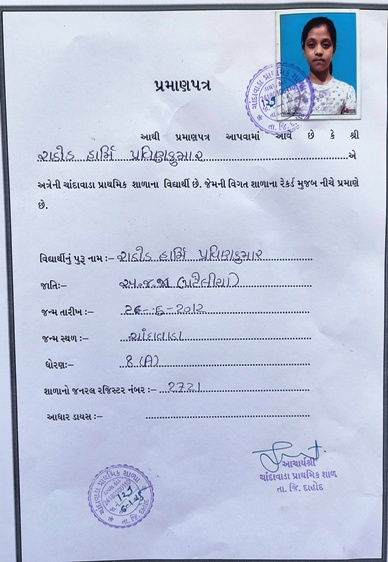 પ્રમાણપત્ર
આથી પ્રમાણપત્ર આપવામાં આવે છે કે શ્રી
રાઠોડ હાર્મિ પ્રવિણકુમાર એ
અત્રેની ચાંદાવાડા પ્રાથમિક શાળાના વિદ્યાર્થી છે. જેમની વિગત શાળાના રેકર્ડ મુજબ નીચે પ્રમાણે
છે.
વિદ્યાર્થીનું પુરૂ નામ :- રાઠોડ હાર્મિ પ્રવિણકુમાર
જાતિ:- અ.જ.જા (પટેલીયા)
જન્મ તારીખ :-
જન્મ સ્થળ :- ચાંદાવાડા
ધોરણ:- 8 (A)
શાળાનો જનરલ રજિસ્ટર નંબર :- 2721
આધાર ડાયસ :-
આચાર્યશ્રી
ચાંદાવાડા પ્રાથમિક શાળા
તા. જિ. દાહોદ